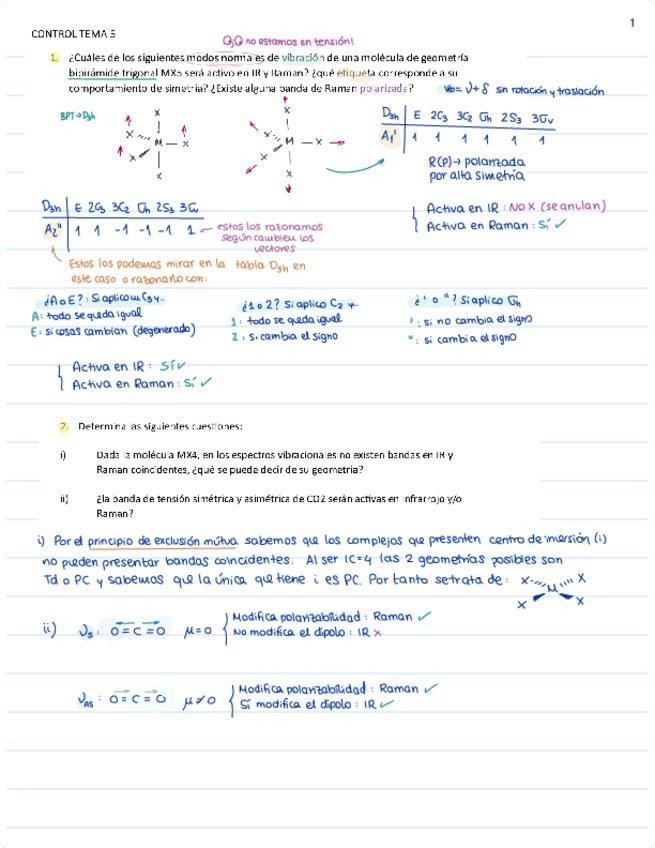 1
CONTROL TEMA 5
OjO no estamos en tensión!
1. ¿Cuáles de los siguientes modos normales de vibración de una molécula de geometría
bipirámide trigonal MX5 será activo en IR y Raman? ¿qué etiqueta corresponde a su
comportamiento de simetría? ¿Existe alguna banda de Raman polarizada?
νb = ν + δ sin rotación y traslación
BPT → D3h
X
X
X
M
X
X
X
M
X
X
D3h E 2C3 3C2 σh 2S3 3σv
A1' 1 1 1 1 1 1
R(p) → polarizada
por alta simetría
D3h E 2C3 3C2 σh 2S3 3σv
A2" 1 1 -1 -1 -1 1
estos los razonamos
según cambien los
vectores
Activa en IR : NO X (se anulan)
Activa en Raman : Sí ✓
Estos los podemos mirar en la tabla D3h en
este caso o razonarlo con:
¿A o E? : Si aplico un C3 y...
A: todo se queda igual
E: si cosas cambian (degenerado)
¿1 o 2? Si aplico C2 y
1: todo se queda igual
2: si cambia el signo
¿' o "? Si aplico σh
': si no cambia el signo
": si cambia el signo
Activa en IR : Sí ✓
Activa en Raman : Sí ✓
2. Determina las siguientes cuestiones:
i) Dada la molécula MX4, en los espectros vibracionales no existen bandas en IR y
Raman coincidentes, ¿qué se puede decir de su geometría?
ii) ¿la banda de tensión simétrica y asimétrica de CO2 serán activas en infrarrojo y/o
Raman?
i) Por el principio de exclusión mutua sabemos que los complejos que presenten centro de inversión (i)
no pueden presentar bandas coincidentes. Al ser IC=4 las 2 geometrías posibles son
Td o PC y sabemos que la única que tiene i es PC. Por tanto se trata de :
X X
M
X X
ii) νs : O=C=O μ=0
Modifica polarizabilidad : Raman ✓
No modifica el dipolo : IR x
νas : O=C=O μ≠0
Modifica polarizabilidad : Raman ✓
Sí modifica el dipolo : IR ✓